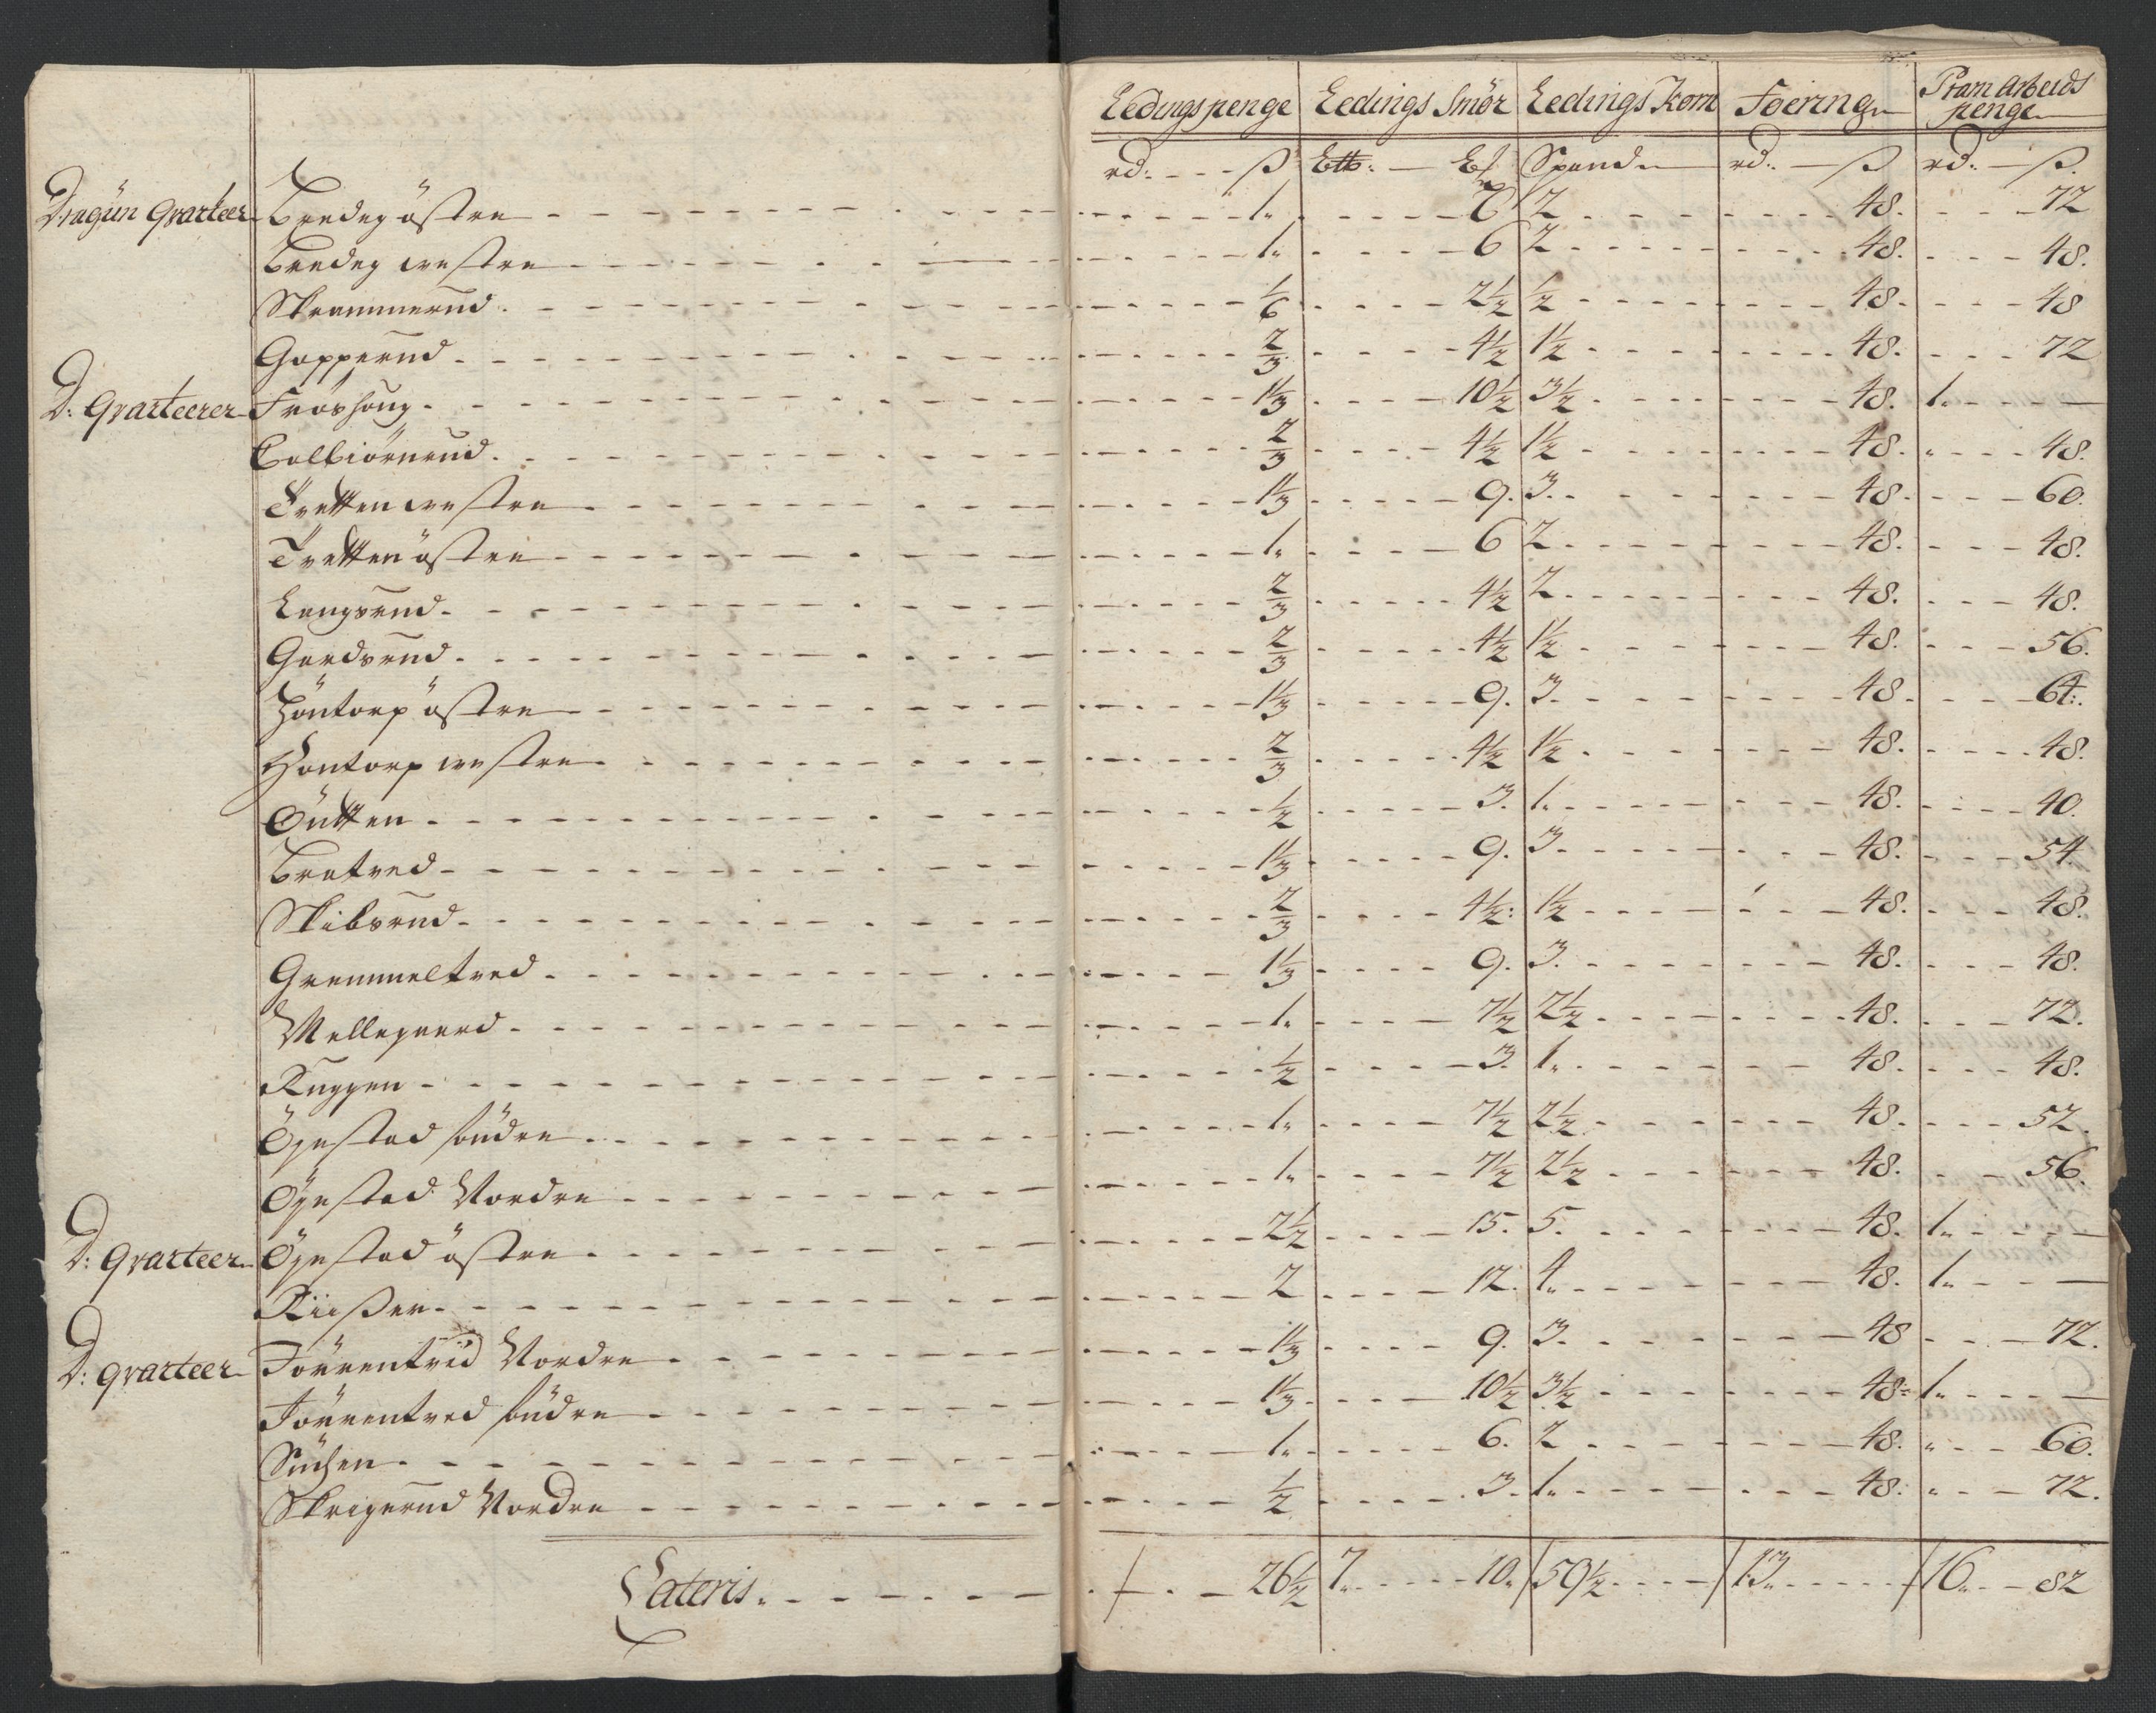 Ledings penge Ledings Smör Ledings Korn Foering Pram Arbeids penge
rd: - - - ß L℔: — Spand rd: — ß rd: — ß.
Dragün Qvarteer Breeke östre 1. 6 2 48. 72
westre 1. 6 2 48. 48.
Skrammerud 1/6 2½ ½ 48. 48
Gopperud 2/3 4½ 1½ 48. 72
D: Qvarteerer Fröshoug 1⅓ 10½ 3½ 48. 1. —
Colbiörnrud 2/3 4½ 1½ 48. 48.
Tvetten westre 1⅓ 9. 3. 48. 60.
Tvetten östre 1. 6 2 48. 48.
Langsrud 2/3 4½ 2 48. 48.
Gardsrud 2/3 4½ 1½ 48. 56.
Höntorp östre 1⅓ 9. 3. 48. 64.
Höntorp westre 2/3 4½ 1½ 48. 48.
½ 3. 1. 48. 40.
Bratved 1⅓ 9. 3 48. 54.
Skibsrud 2/3 4½: 1½ 48. 48.
Gremmeltved 1⅓ 9. 3. 48. 48.
Mellegaard 1. 7½ 2½ 48. 72.
Kuggen ½ 3. 1. 48. 48.
Öyestad söndre 1. 7½ 2½ 48. 52.
Öyestad Nordre 1. 7½ 2½ 48. 56.
D: Qvarteer Öyestad östre 2½ 15. 5. 48. 1. —
2 12. 4. 48. 1. —
D: qvarteer Törrentvid Nordre 1⅓ 9. 3. 48 72.
Törrentved söndre 1⅓ 10½ 3½ 48. 1. —
1. 6. 2 48. 60.
Skrigerud Nordre ½ 3. 1. 48. 72.
Lateris. 26½ 7. 10. 59½ 13. 16. 82